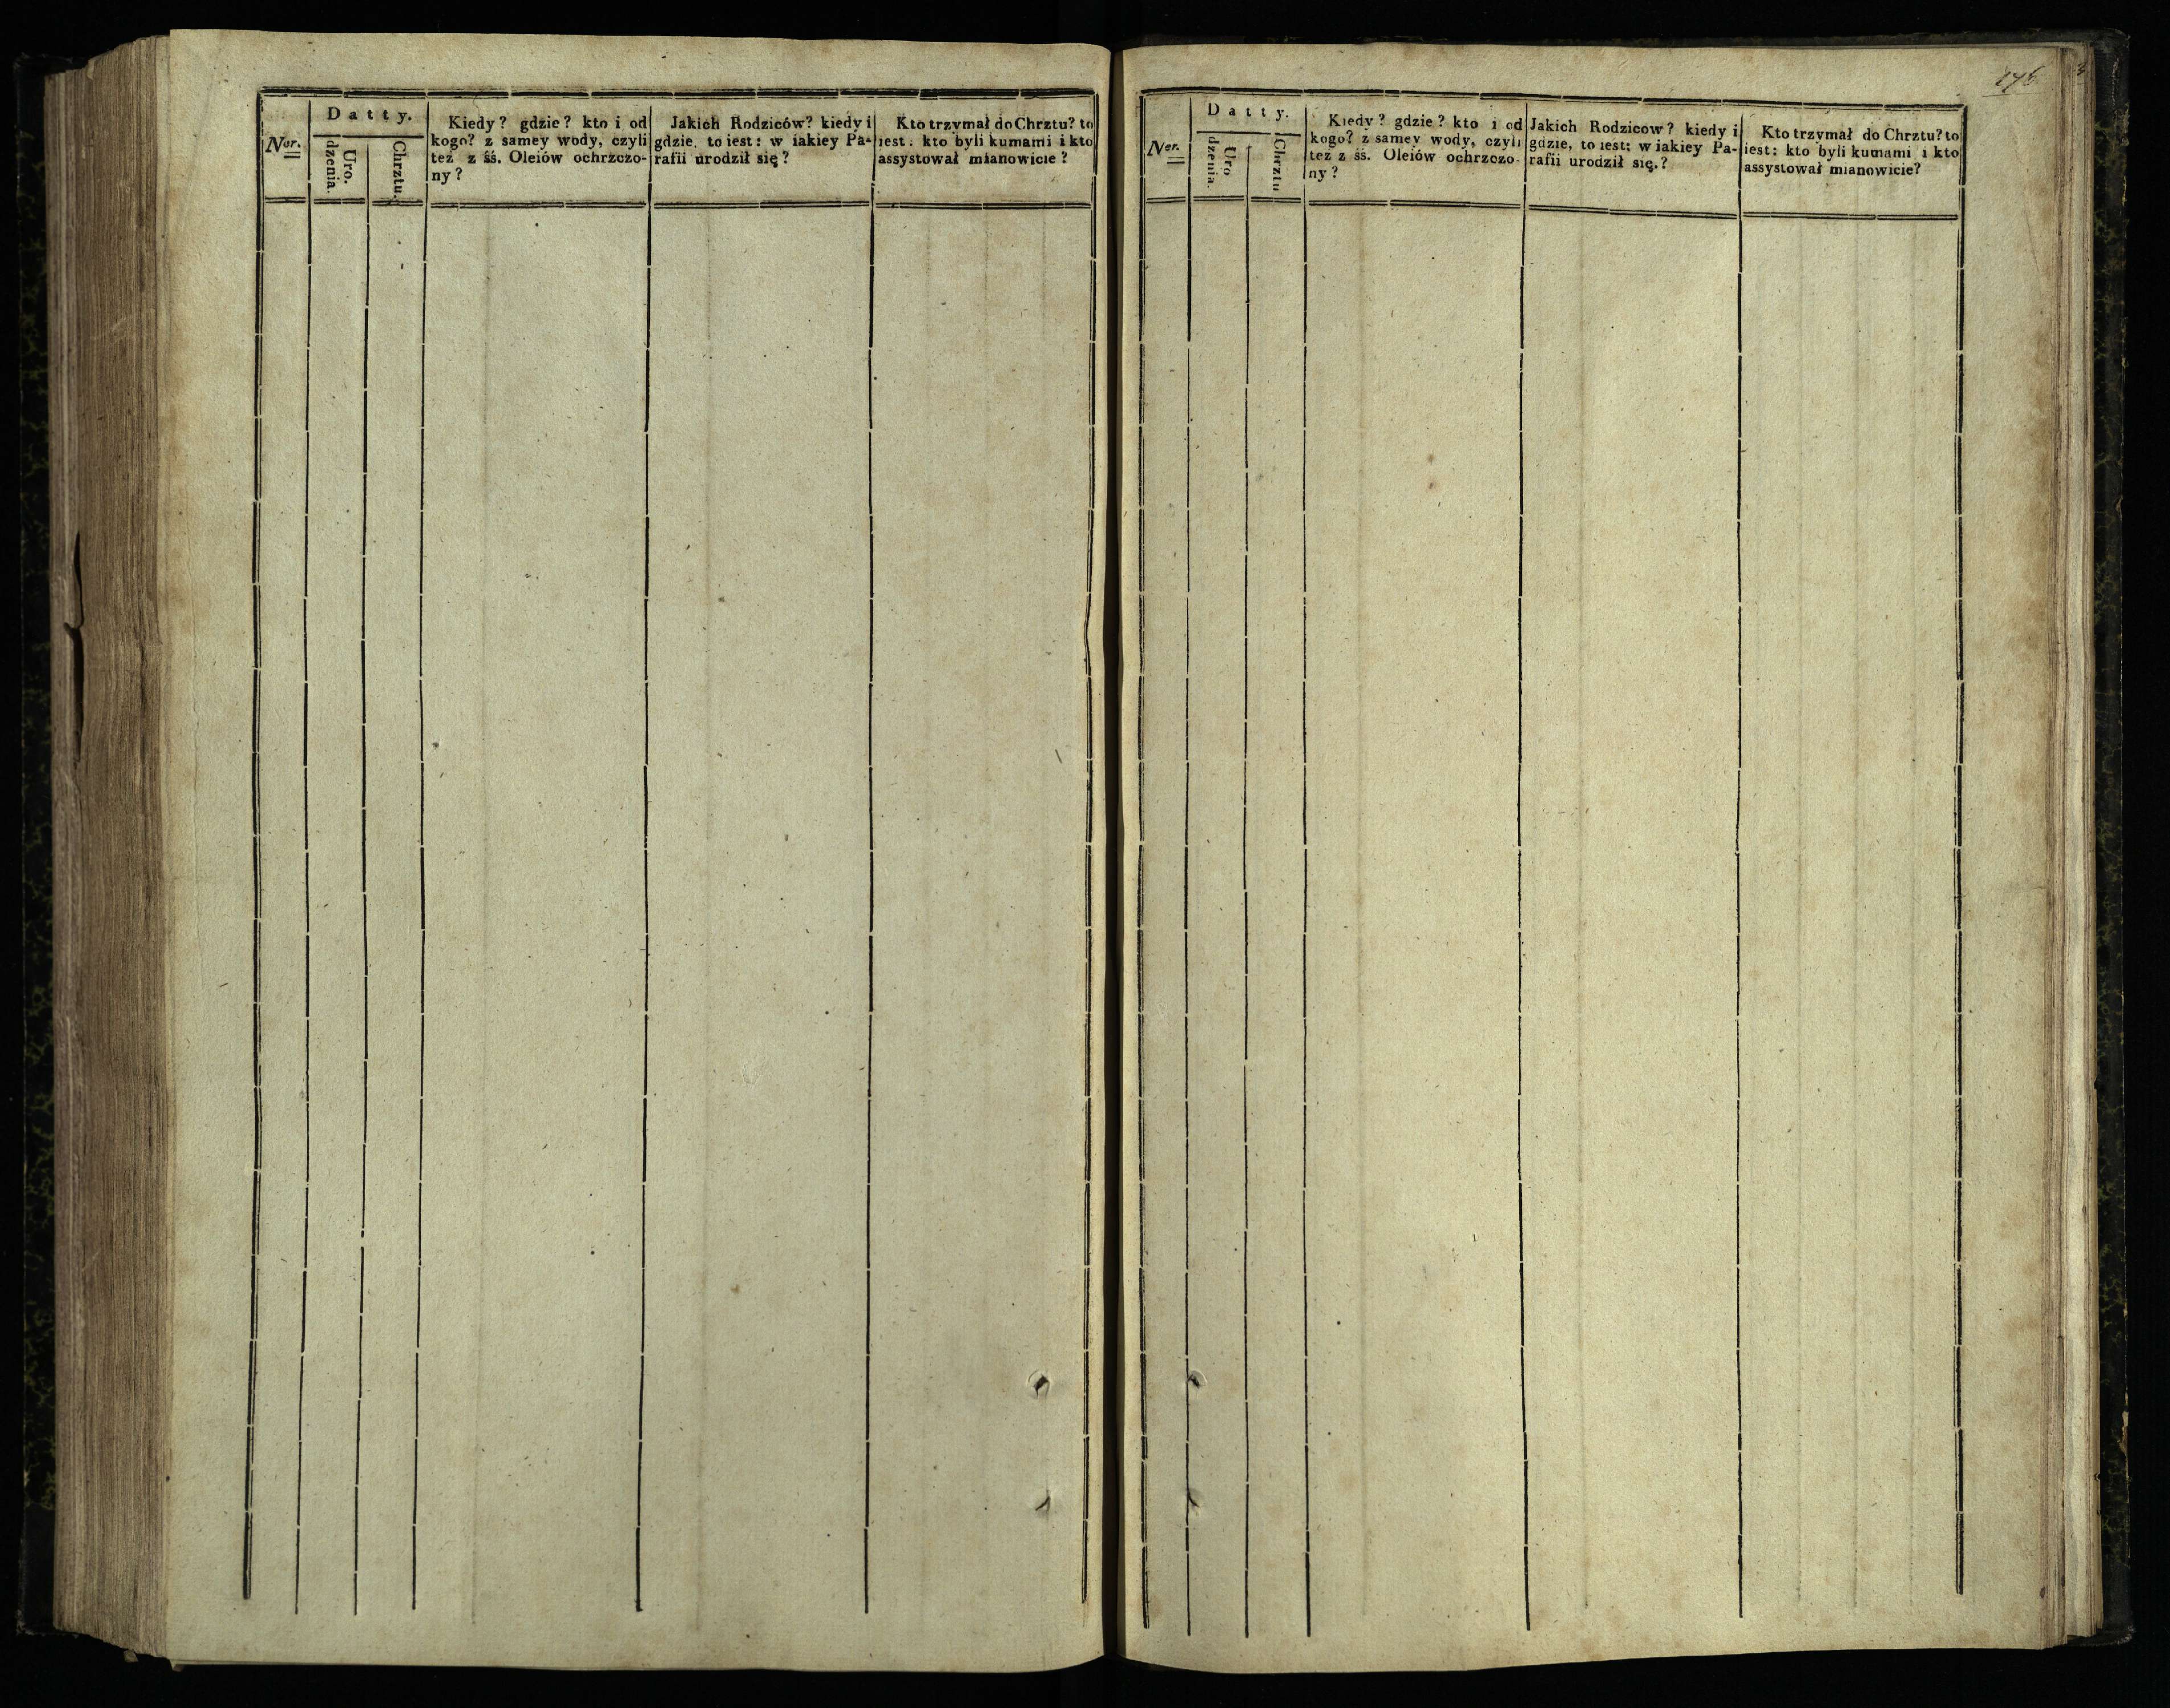 Ner.
Datty.
Uro.
dzenia.
Chrztu.
Kiedy? gdzie? kto i od
kogo? z samey wody, czyli
też z śś. Oleiów ochrzczo-
ny?
Jakich Rodziców? kiedy i
gdzie, to iest: w iakiey Pa-
rafii urodził się?
Kto trzymał do Chrztu? to
iest: kto byli kumami i kto
assystował mianowicie?
Ner.
Datty.
Uro
dzenia.
Chrztu
Kiedy? gdzie? kto i od
kogo? z samey wody, czyli
też z śś. Oleiów ochrzczo-
ny?
Jakich Rodziców? kiedy i
gdzie, to iest: w iakiey Pa-
rafii urodził się.?
Kto trzymał do Chrztu? to
iest: kto byli kumami i kto
assystował mianowicie?